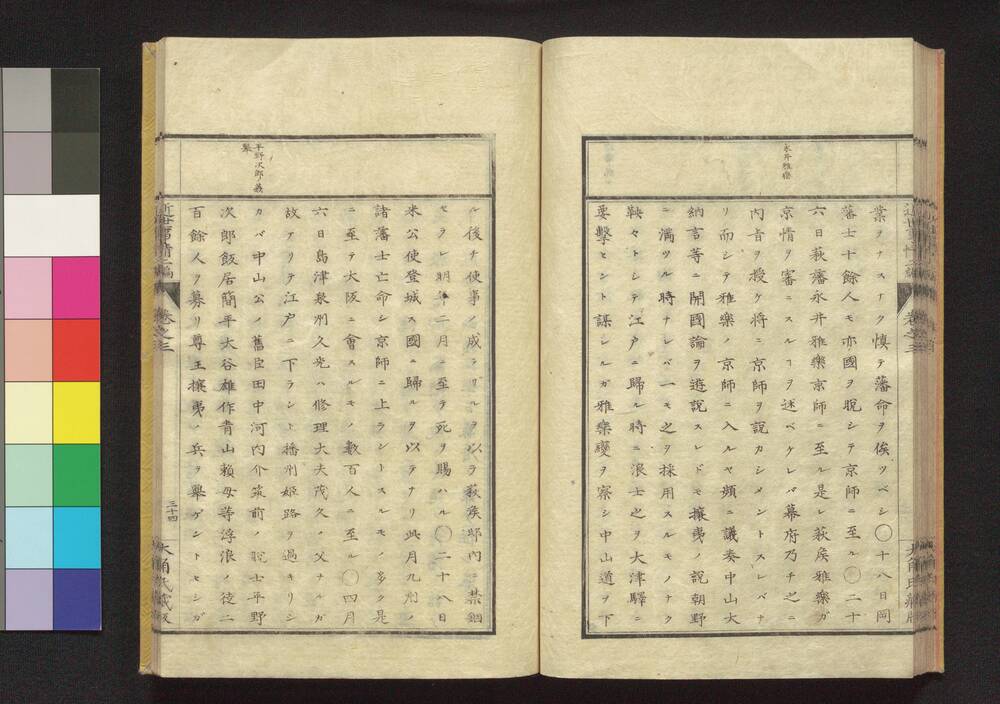 永井雅樂
業ヲナスナク愼テ藩命ヲ俟ツベシ○十八日岡
藩士十餘人モ亦國ヲ脫シテ京師ニ至ル○二十
六日萩藩永井雅樂京師ニ至ル是レ萩侯雅樂ガ
京情ヲ審ニスルヿヲ述ベケレバ幕府乃チ之ニ
内旨ヲ授ケ將ニ京師ヲ說カシメントスレバナ
リ而シテ雅樂ノ京師ニ入ルヤ頻ニ議奏中山大
納言等ニ開國論ヲ遊說スレドモ攘夷ノ說朝野
ニ滿ツル時ナレバ一モ之ヲ採用スルモノナク
鞅々トシテ江戸ニ歸ル時ニ浪士之ヲ大津驛ニ
要擊セント謀シルガ雅樂變ヲ察シ中山道ヲ下
平野次郎ノ義
擧
ル後チ使事ノ成ラザルヲ以テ萩侯邸内ニ禁錮
セラレ明年二月ニ至テ死ヲ賜ハル○二十八日
米公使登城ス國ニ歸ルヲ以テナリ此月九州ノ
諸藩士亡命シ京師ニ上ラントスルモノ多ク是
ニ至テ大阪ニ會スルモノ數百人ニ至ル○四月
六日島津泉州久光ハ修理大夫茂久ノ父ナルガ
故アリテ江戸ニ下ラント播州姫路ヲ過キリシ
カバ中山公ノ舊臣田中河内介筑前ノ脫士平野
次郎飯居簡平大谷雄作青山賴母等浮浪ノ徒二
百餘人ヲ募リ尊王攘夷ノ兵ヲ擧ゲントセシガ
卷之三
三十四